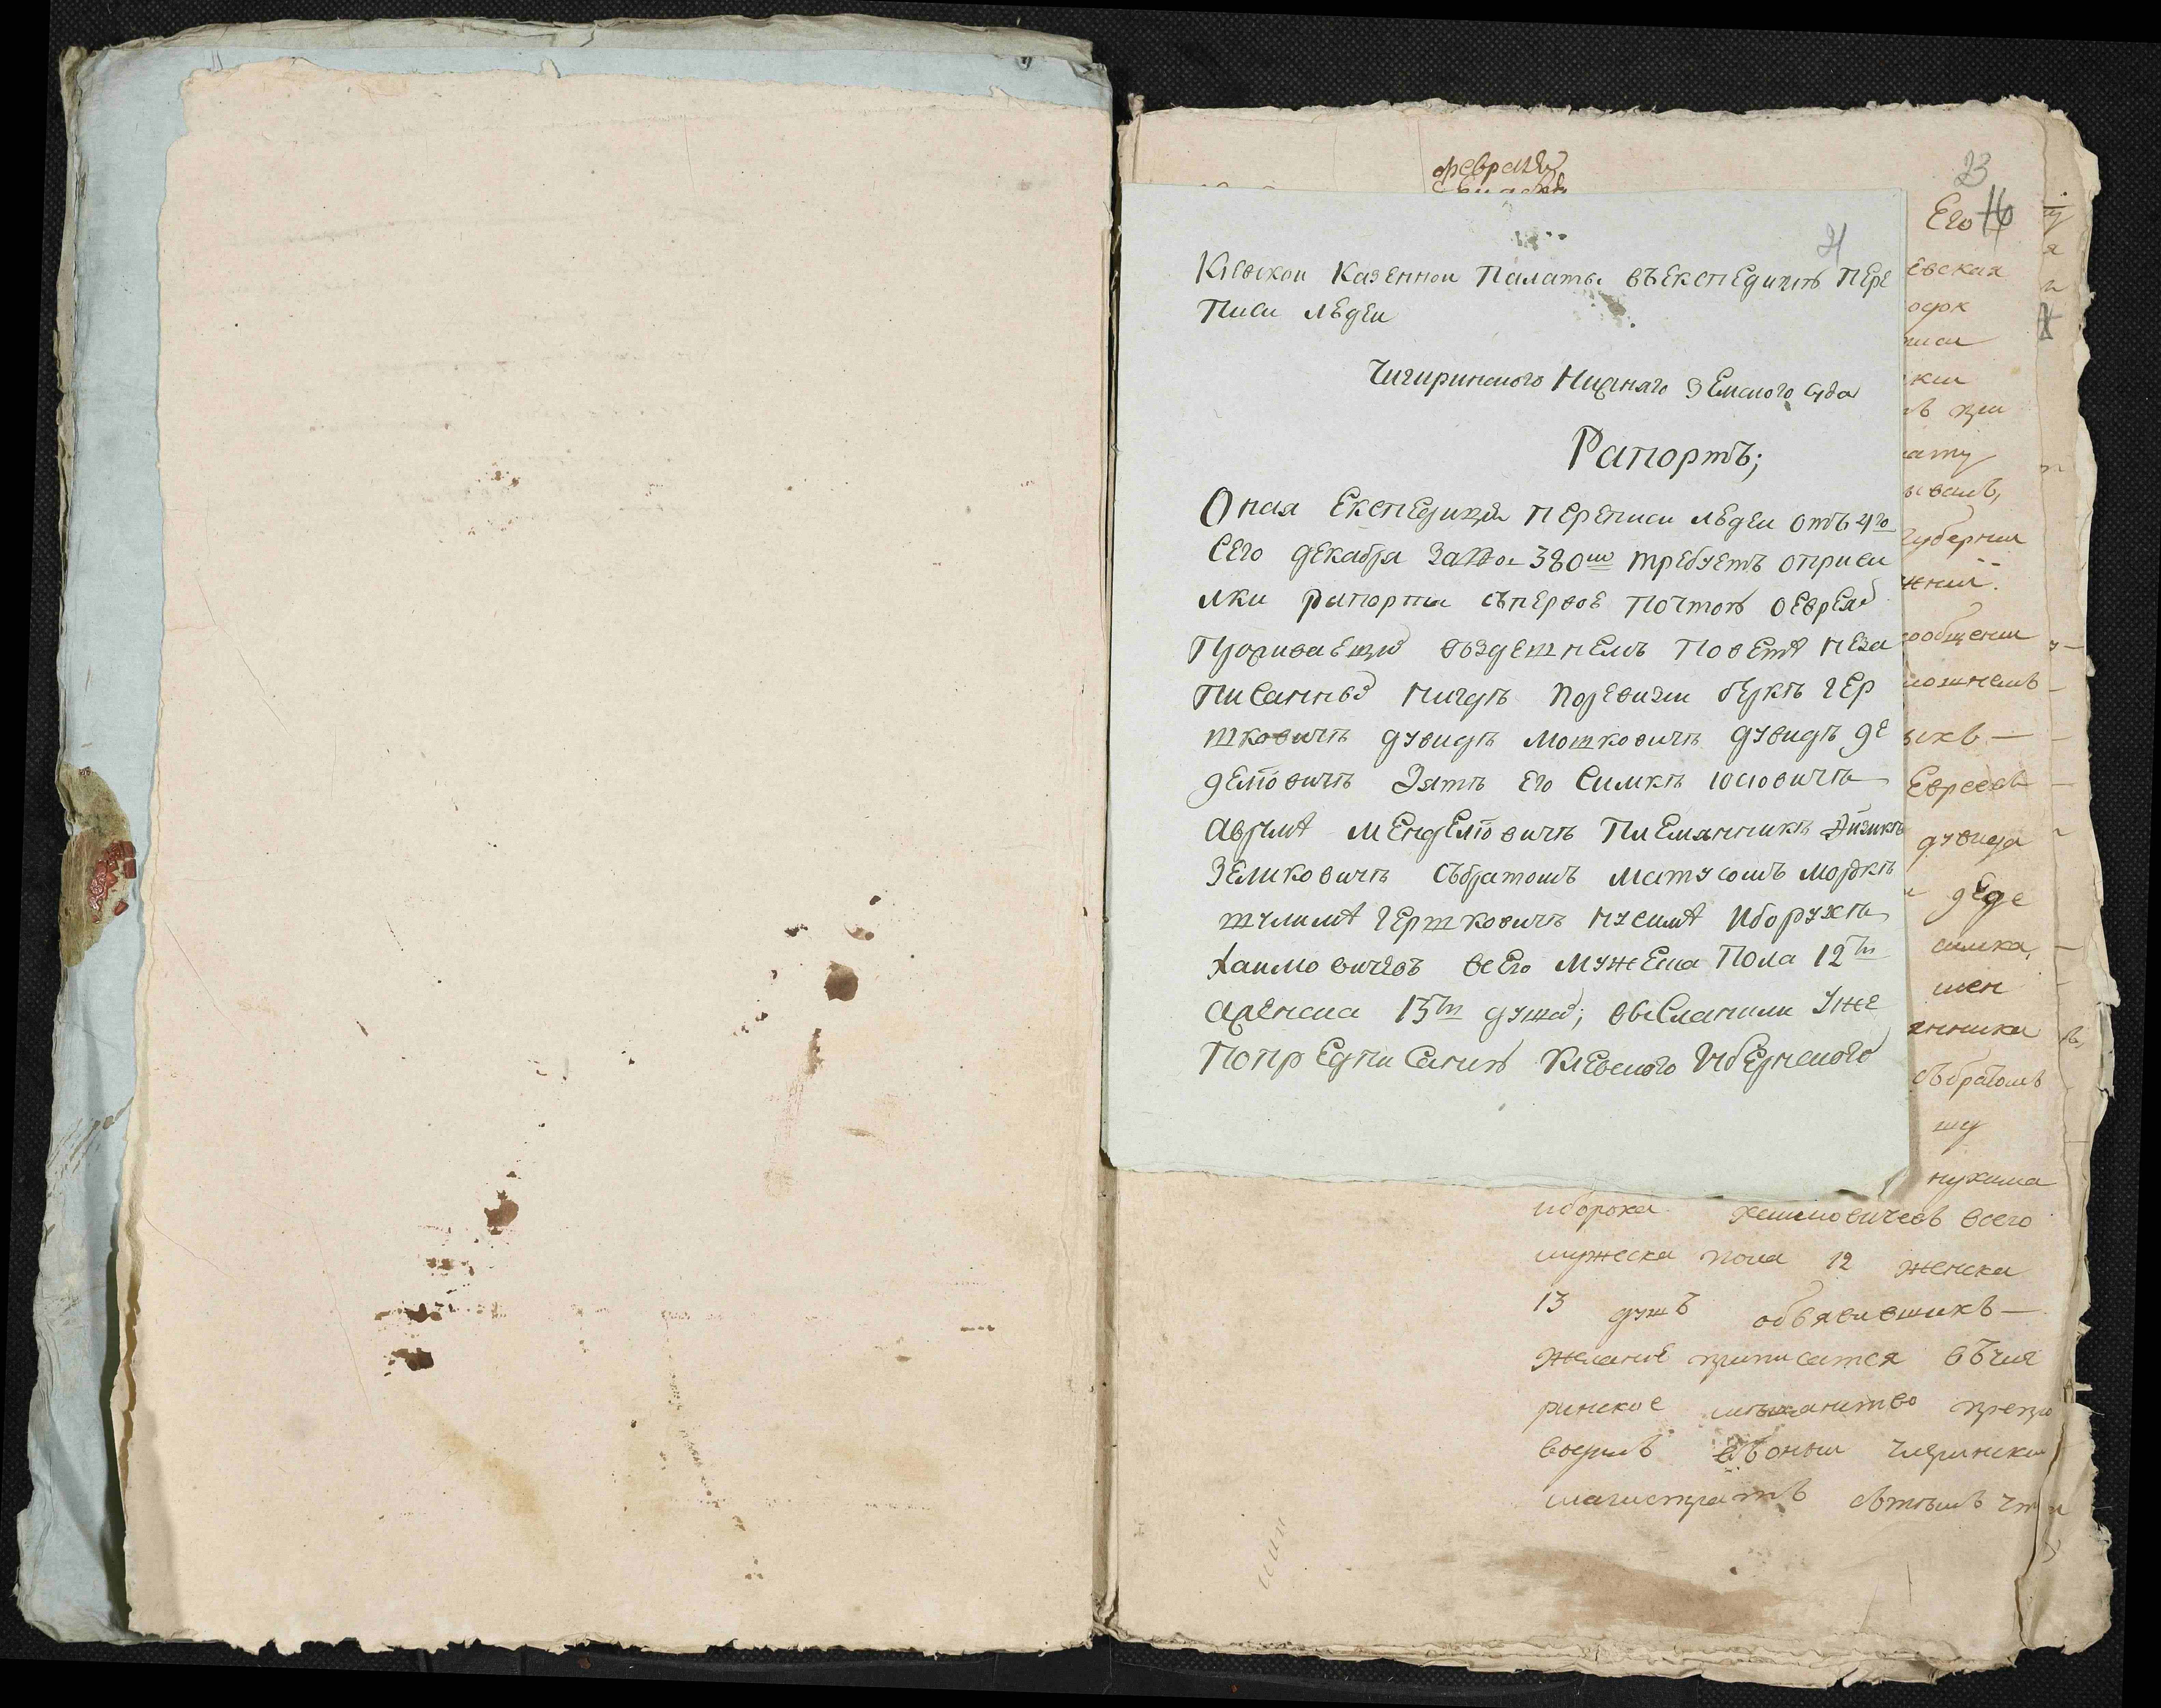 февраля
23
Его 16
21
Киевской Казенной Палаты въекспедицію пере
писи людеи
Чигиринского Нижнаго Земского суда
Рапортъ;
Оная Експедиція переписи людеи отъ 4го
сего декабря за №о 380ю требуетъ оприси
лки рапорта съпервое почтою оеврея
проживающи въздешнемъ поветѣ неза
писанны нигдѣ поревизіи беркѣ гер
шковичѣ дувидѣ мошковичѣ дувидѣ де
деліовичѣ зятѣ его симкѣ иосіовичѣ
аврумѣ менделіовичѣ племянникѣ айзикѣ
зелмковичѣ събратомъ матусомъ мордкѣ
шулимѣ гершковичѣ нусимѣ иборухѣ
хаимовичевъ всего мужеска пола 12ти
аженска 13ти душа; высланили уже
попредписанію Киевского Губернского
евская
писи
кии
ату
губернии
жний.
сообщении
ложнемъ
Евреевъ
дувида
деде
симка,
мен
янника
събратомъ
шу
нухима
иборока хаимовичевъ всего
мужеска пола 12 женска
13 душъ обявившихъ
желание приписатся въчиги
ринское мещанство препро
водилъ въоный чигрински
магистратъ сътемъ чт